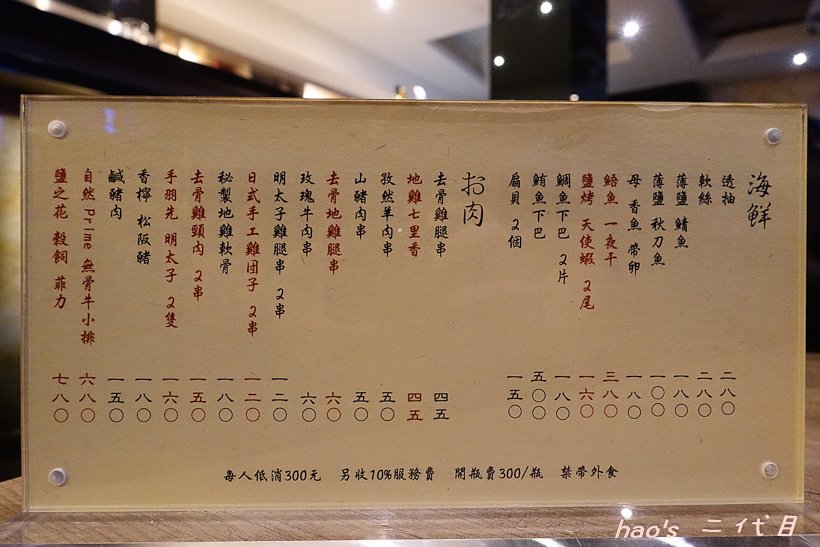 海鮮
透抽 二八〇
軟絲 二八〇
薄鹽 鯖魚 一八〇
薄鹽 秋刀魚 一〇〇
母 香魚 帶卵 一八〇
鮥魚 一夜干 三八〇
鹽烤 天使蝦 2尾 一六〇
鯛魚下巴 2片 一八〇
鮪魚下巴 五〇〇
扇貝 2個 一五〇
お肉
去骨雞腿串 四五
地雞七里香 四五
孜然羊肉串 五〇
山豬肉串 五〇
去骨地雞腿串 六〇
玫瑰牛肉串 六〇
明太子雞腿串 2串 一二〇
日式手工雞団子 2串 一二〇
秘製地雞軟骨 一八〇
去骨雞頸肉 2串 一五〇
手羽先 明太子 2隻 一六〇
香檸 松阪豬 一八〇
鹹豬肉 一五〇
自然Prime無骨牛小排 六八〇
鹽之花 穀飼 菲力 七八〇
每人低消300元 另收10%服務費 開瓶費300/瓶 禁帶外食
hao's 二代目